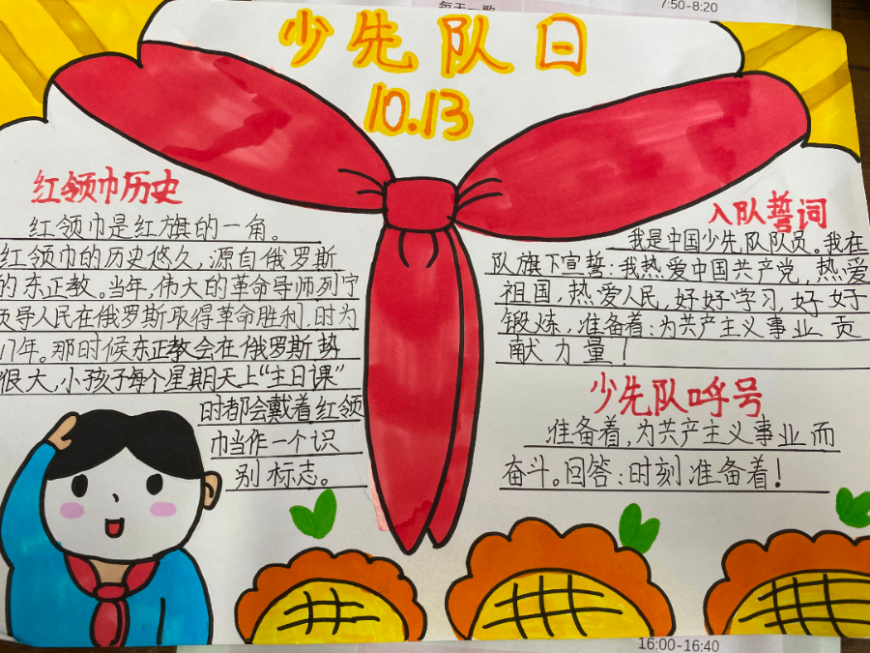 每天一歌
7:50-8:20
少先队日
10.13
红领巾历史
红领巾是红旗的一角。
红领巾的历史悠久,源自俄罗斯
的东正教。当年,伟大的革命导师列宁
领导人民在俄罗斯取得革命胜利,时为
17年。那时候东正教会在俄罗斯势
很大,小孩子每个星期天上“主日课”
时都会戴着红领
巾当作一个识
别标志。
入队誓词
我是中国少先队队员。我在
队旗下宣誓:我热爱中国共产党,热爱
祖国,热爱人民,好好学习,好好
锻炼,准备着:为共产主义事业贡
献力量!
少先队呼号
准备着,为共产主义事业而
奋斗。回答:时刻准备着!
16:00-16:40